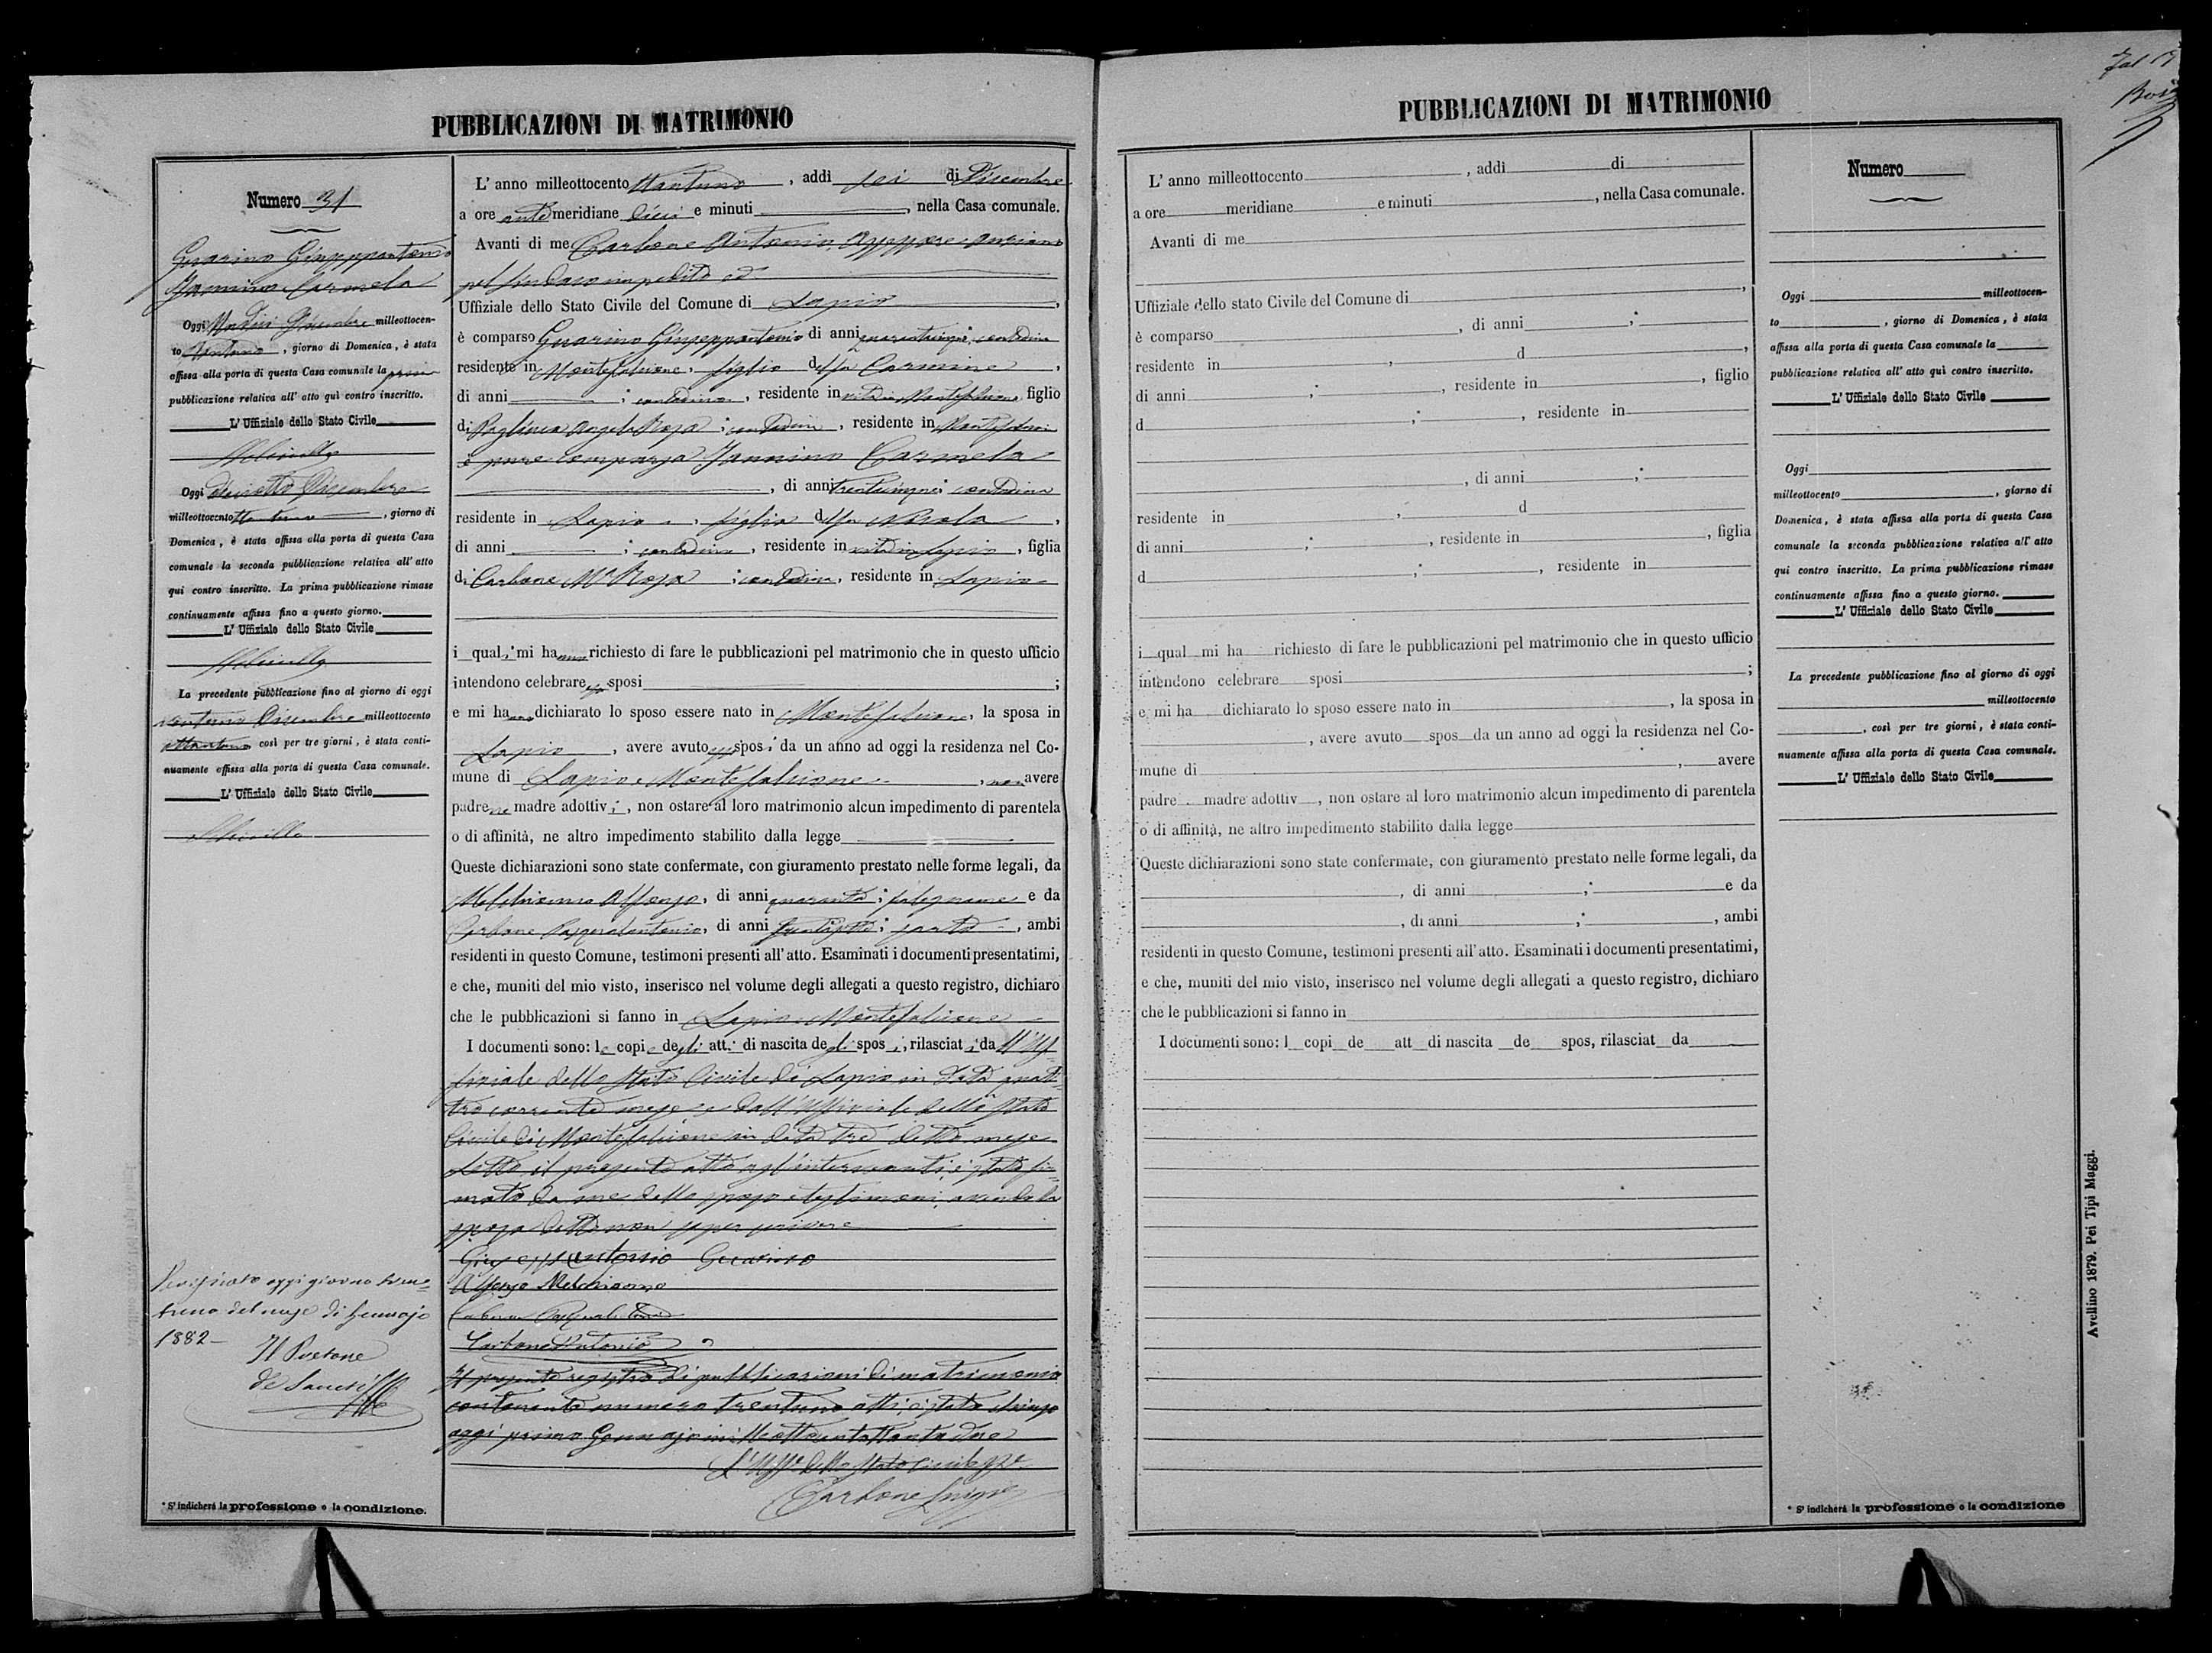 PUBBLICAZIONI DI MATRIMONIO
Numero 31
Guarino Giuseppantonio
Iannino Carmela
Oggi Undici Dicembre milleottocen-
to ttantuno, giorno di Domenica, è stata
affissa alla porta di questa Casa comunale la prima
pubblicazione relativa all' atto qui contro inscritto.
L' Uffiziale dello Stato Civile
Oggi diciotto Dicembre
milleottocento ttantuno, giorno di
Domenica, è stata affissa alla porta di questa Casa
comunale la seconda pubblicazione relativa all' atto
qui contro inscritto. La prima pubblicazione rimase
continuamente affissa fino a questo giorno.
L' Uffiziale dello Stato Civile
La precedente pubblicazione fino al giorno di oggi
ventuno Dicembre milleottocento
ottantuno così per tre giorni, è stata conti-
nuamente affissa alla porta di questa Casa comunale.
L' Uffiziale dello Stato Civile
Verificato oggi giorno
del mese di Gennajo
1882
Il Pretore
de Sanctis
* S' indicherà la professione o la condizione.
L' anno milleottocento ttantuno, addì sei di Dicembre
a ore anti meridiane dieci e minuti , nella Casa comunale.
Avanti di me Carbone Antonio Assessore anziano
pel sindaco impedito ed
Uffiziale dello Stato Civile del Comune di Lapio,
è comparso Guarino Giuseppantonio di anni quarantacinque; contadino
residente in Montefalcione, figlio del fu Carmine,
di anni ; contadino, residente in vita in Montefalcione, figlio
di Angela Rosa; contadina, residente in Montefalcione
è pure comparsa Iannino Carmela
, di anni trentacinque; contadina
residente in Lapio, figlia del fu Nicola,
di anni ; contadino, residente in vita in Lapio, figlia
di Carbone Ma Rosa; contadina, residente in Lapio
i quali mi hanno richiesto di fare le pubblicazioni pel matrimonio che in questo ufficio
intendono celebrare essi sposi ;
e mi hanno dichiarato lo sposo essere nato in Montefalcione, la sposa in
Lapio, avere avuto essi sposi da un anno ad oggi la residenza nel Co-
mune di Lapio e Montefalcione, non avere
padre ne madre adottivi, non ostare al loro matrimonio alcun impedimento di parentela
o di affinità, ne altro impedimento stabilito dalla legge
Queste dichiarazioni sono state confermate, con giuramento prestato nelle forme legali, da
Melchionno Alfonso, di anni quaranta; falegname e da
Carbone Pasqualantonio, di anni ; sarto, ambi
residenti in questo Comune, testimoni presenti all' atto. Esaminati i documenti presentatimi,
e che, muniti del mio visto, inserisco nel volume degli allegati a questo registro, dichiaro
che le pubblicazioni si fanno in Lapio e Montefalcione
I documenti sono: le copie degli atti di nascita degli sposi, rilasciati da ll'Uf-
fiziale dello Stato Civile di Lapio in data quat-
tro corrente mese e dall'Uffiziale dello Stato
Civile di Montefalcione in data tre detto mese
Letto il presente atto agl'intervenuti, è stato fir-
mato da me dallo sposo e testimoni, avendo la
sposa detto non saper scrivere
Giuseppantonio Guarino
Alfonso Melchionno
Carbone Pasqualantonio
Carbone Antonio
Il presente registro di pubblicazioni di matrimonio
contenente numero trentuno atti, è stato chiuso
oggi primo Gennajo milleottocentottantadue
L'Uffle dello Stato Civile
Carbone Luigi
PUBBLICAZIONI DI MATRIMONIO
L' anno milleottocento , addì di
a ore meridiane e minuti , nella Casa comunale.
Avanti di me
Uffiziale dello stato Civile del Comune di ,
è comparso , di anni ;
residente in , d ,
di anni ; , residente in , figlio
d ; , residente in
, di anni ;
residente in , d
di anni ; , residente in , figlia
d ; , residente in
i qual mi ha richiesto di fare le pubblicazioni pel matrimonio che in questo ufficio
intendono celebrare sposi ;
e mi ha dichiarato lo sposo essere nato in , la sposa in
, avere avuto spos da un anno ad oggi la residenza nel Co-
mune di , avere
padre madre adottiv , non ostare al loro matrimonio alcun impedimento di parentela
o di affinità, ne altro impedimento stabilito dalla legge
Queste dichiarazioni sono state confermate, con giuramento prestato nelle forme legali, da
, di anni ; e da
, di anni ; , ambi
residenti in questo Comune, testimoni presenti all' atto. Esaminati i documenti presentatimi,
e che, muniti del mio visto, inserisco nel volume degli allegati a questo registro, dichiaro
che le pubblicazioni si fanno in
I documenti sono: l copi de att di nascita de spos, rilasciat da
Numero
Oggi milleottocen-
to , giorno di Domenica, è stata
affissa alla porta di questa Casa comunale la
pubblicazione relativa all' atto quì contro inscritto.
L' Uffiziale dello Stato Civile
Oggi
milleottocento , giorno di
Domenica, è stata affissa alla porta di questa Casa
comunale la seconda pubblicazione relativa all' atto
qui contro inscritto. La prima pubblicazione rimase
continuamente affissa fino a questo giorno.
L' Uffiziale dello Stato Civile
La precedente pubblicazione fino al giorno di oggi
milleottocento
, così per tre giorni, è stata conti-
nuamente affissa alla porta di questa Casa comunale.
L' Uffiziale dello Stato Civile
* S' indicherà la professione o la condizione
Avellino 1879. Pei Tipi Maggi.